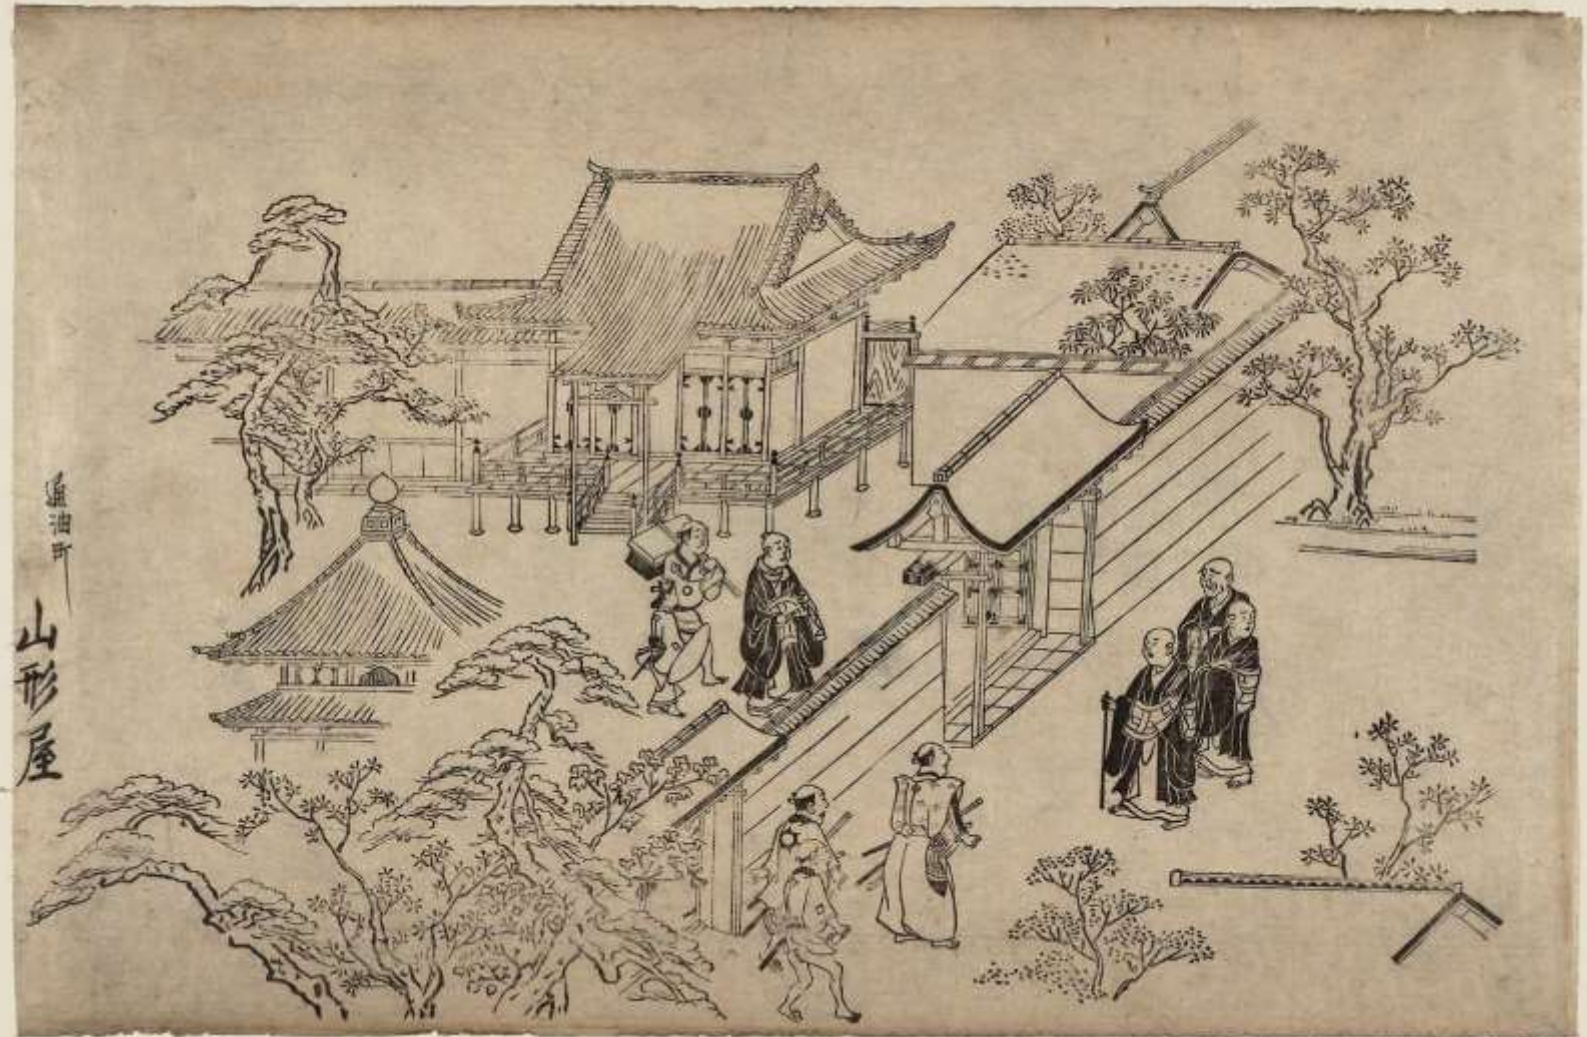 通油町
山形屋